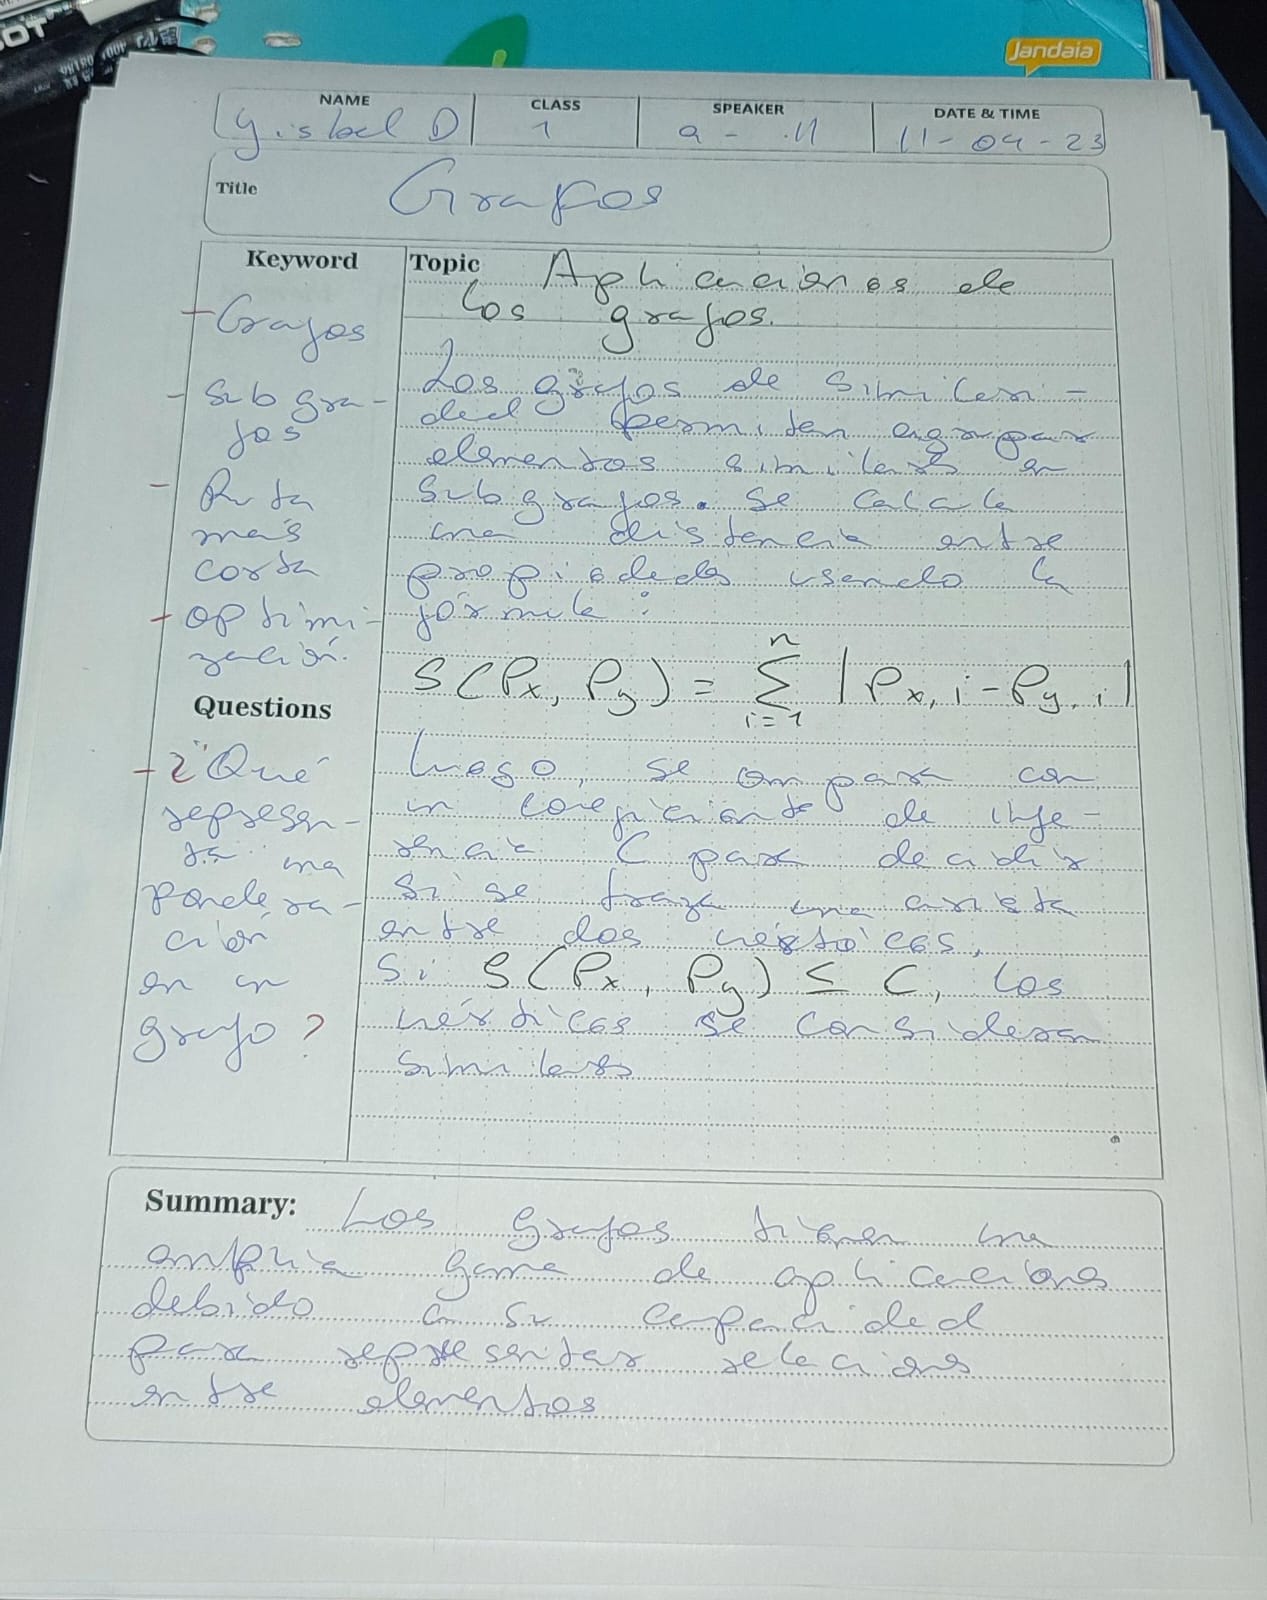 Jandaia
NAME CLASS SPEAKER DATE & TIME
Yisbel D 1 a - .11 11-04-23
Title Grafos
Keyword
- Grafos
- Subgra-
fos
- Ruta
más
corta
- optimi-
zación.
Questions
- ¿Qué
represen-
ta una
pondera-
ción
en un
grafo?
Topic Aplicaciones de
los grafos.
Los grafos de similari-
dad permiten agrupar
elementos similares en
subgrafos. se calcula
una distancia entre
propiedades usando la
fórmula:
S(Px, Py) = n∑i=1 |Px,i - Py,i|
Luego, se compara con
un coeficiente de infe-
rencia C para decidir
si se traza una arista
entre dos vértices.
Si S(Px, Py) ≤ C, los
vértices se consideran
similares
Summary: Los grafos tienen una
amplia gama de aplicaciones
debido a su capacidad
para representar relaciones
entre elementos